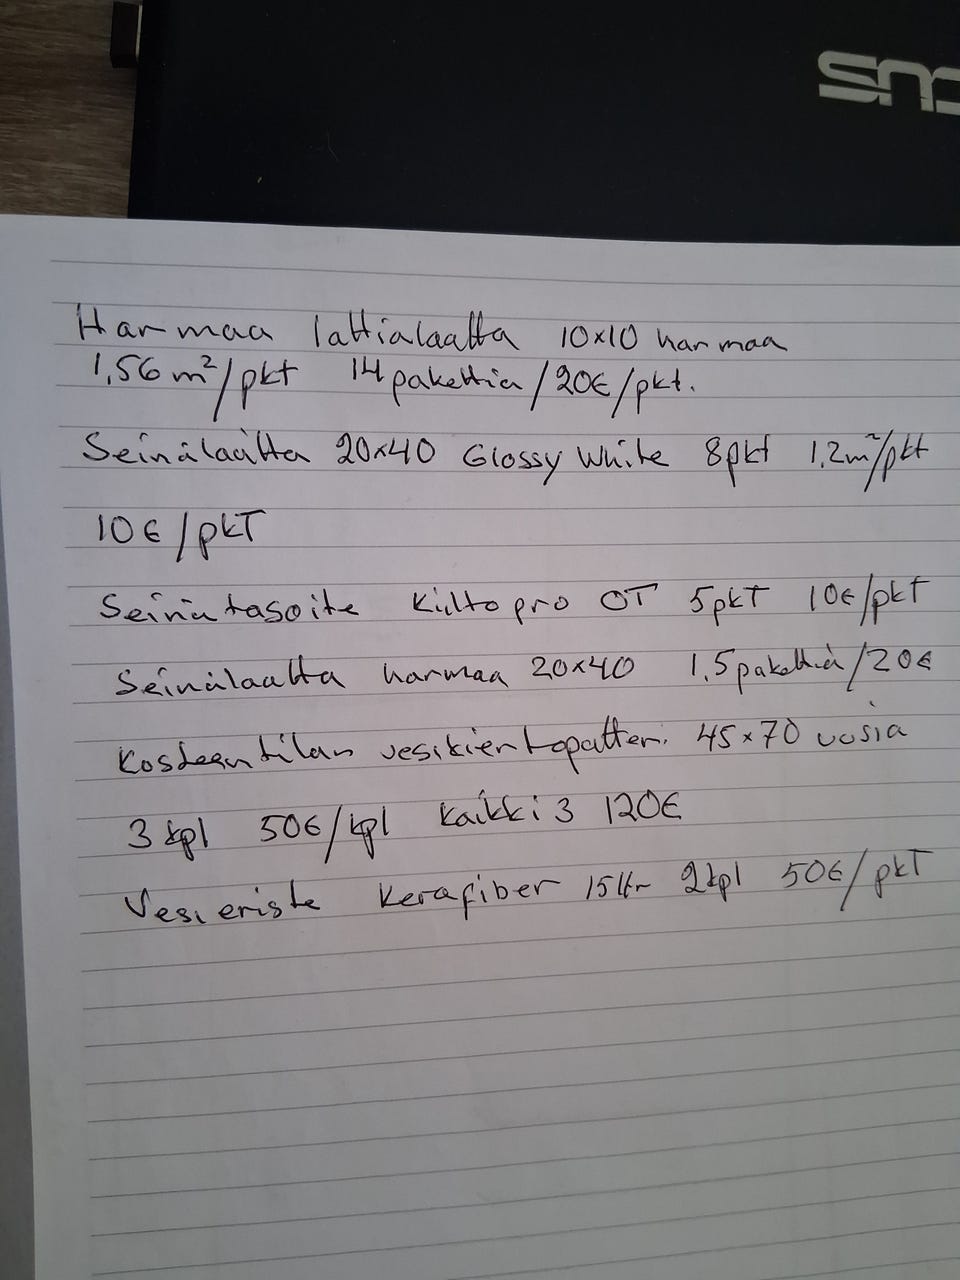 Harmaa lattialaatta 10x10 harmaa
1,56 m²/pkt 14 pakettia/20€/pkt.
Seinälaatta 20x40 Glossy White 8pkt 1,2m²/pkt
10€/pkT
Seinätasoite Kiilto pro OT 5pkT 10€/pkT
Seinälaatta harmaa 20x40 1,5 pakettia/20€
Kosteantilan vesikiertopatteri 45x70 uusia
3 kpl 50€/kpl Kaikki 3 120€
Vesieriste Kerafiber 15ltr 2kpl 50€/pkT